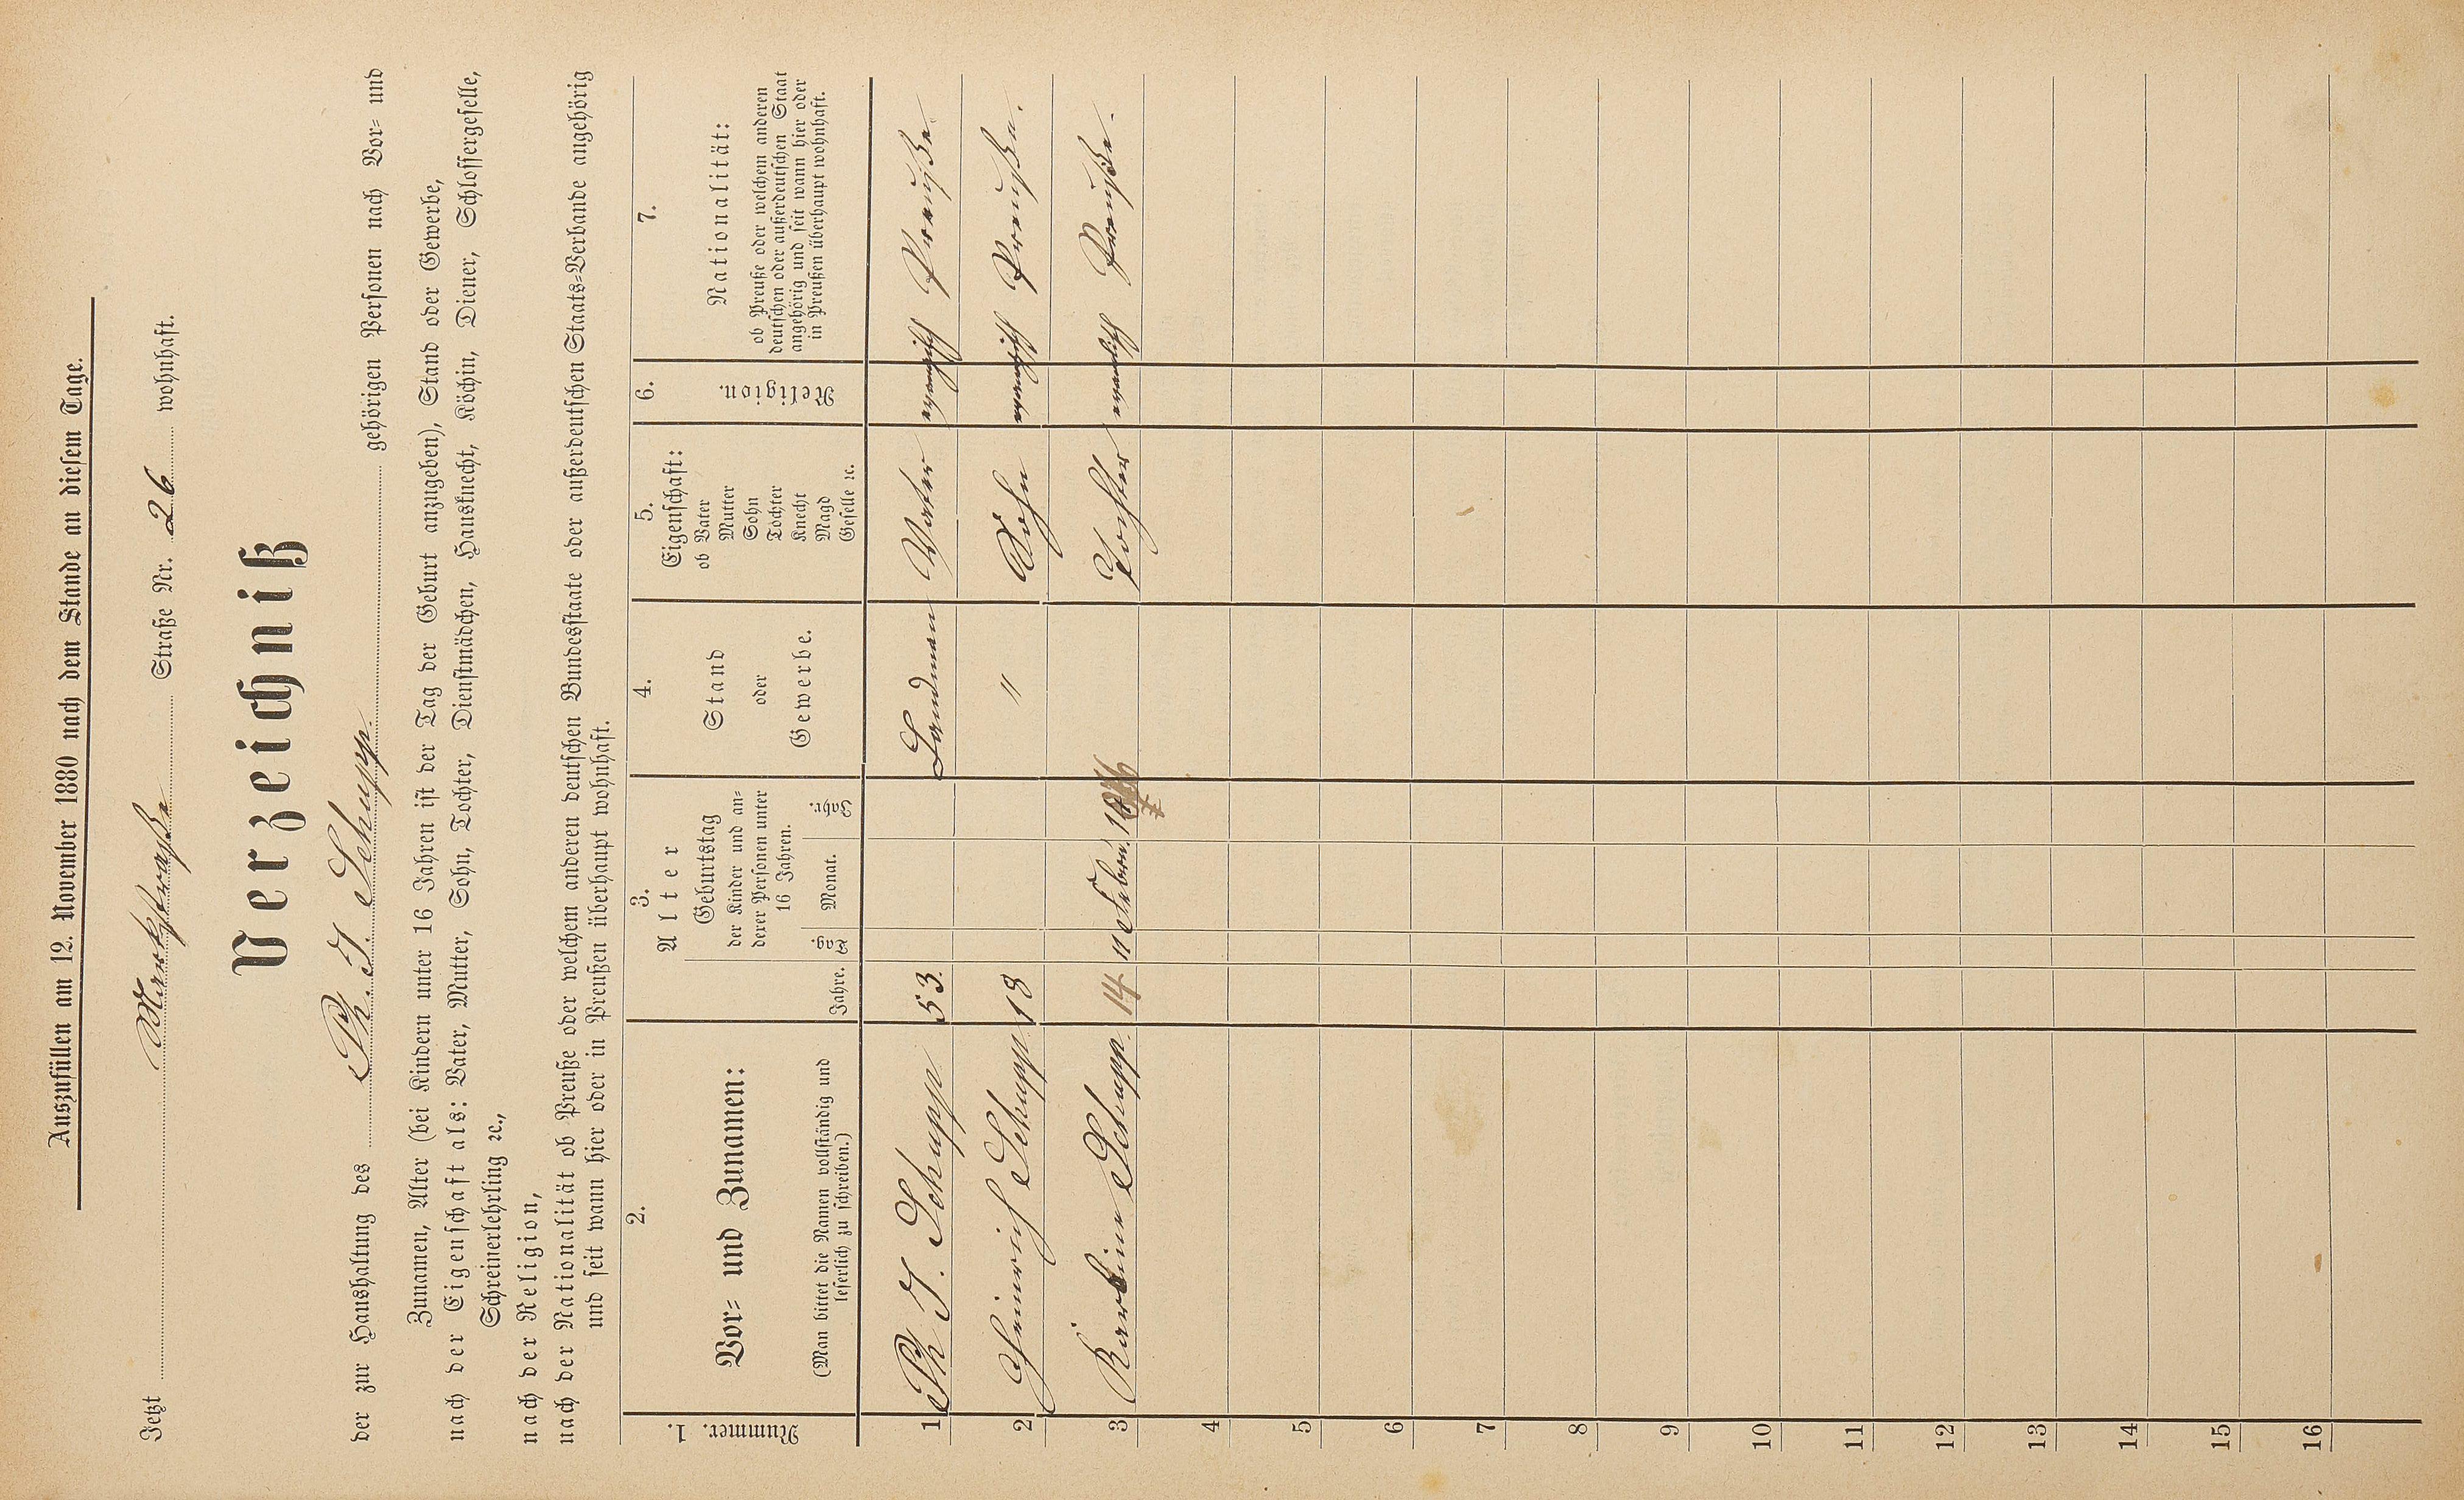 Auszufüllen am 12. November 1880 nach dem Stande an diesem Tage.
Jetzt Marktstraße Straße Nr. 26 wohnhaft.
Verzeichniß
der zur Haushaltung des Ph. J. Schupp. gehörigen Personen nach Vor- und
Zunamen, Alter (bei Kindern unter 16 Jahren ist der Tag der Geburt anzugeben), Stand oder Gewerbe,
nach der Eigenschaft als: Vater, Mutter, Sohn, Tochter, Dienstmädchen, Hausknecht, Köchin, Diener, Schlossergeselle,
Schreinerlehrling ꝛc.,
nach der Religion,
nach der Nationalität ob Preuße oder welchem anderen deutschen Bundesstaate oder außerdeutschen Staats-Verbande angehörig
und seit wann hier oder in Preußen überhaupt wohnhaft.
1.
Nummer.
2.
Vor- und Zunamen:
(Man bittet die Namen vollständig und
leserlich zu schreiben.)
3.
Alter
Jahre.
Geburtstag
der Kinder und an-
derer Personen unter
16 Jahren.
Tag. Monat. Jahr.
4.
Stand
oder
Gewerbe.
5.
Eigenschaft:
ob Vater
Mutter
Sohn
Tochter
Knecht
Magd
Geselle ꝛc.
6.
Religion.
7.
Nationalität:
ob Preuße oder welchem anderen
deutschen oder außerdeutschen Staat
angehörig und seit wann hier oder
in Preußen überhaupt wohnhaft.
1 Ph. J. Schupp 53. Landman Vater Preuße.
2 Heinrich Schupp 18 " Sohn Preuße.
3 Schupp. 14 11 Febru. Tochter Preuße.
4
5
6
7
8
9
10
11
12
13
14
15
16